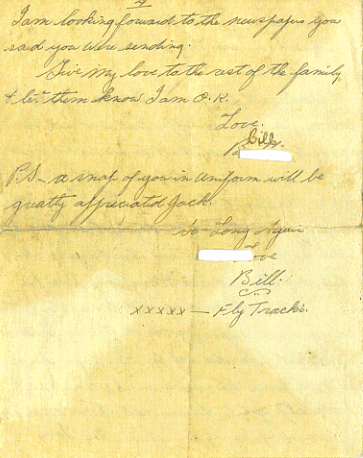 4
I am looking forward to the newspapers you
said you were sending.
Give my love to the rest of the family
& let them know I am O.K.
Love.
Bill.
P.S. a snap of you in uniform will be
greatly appreciated Jack.
So Long Again
Love
Bill.
xxxxx — Fly Tracks.